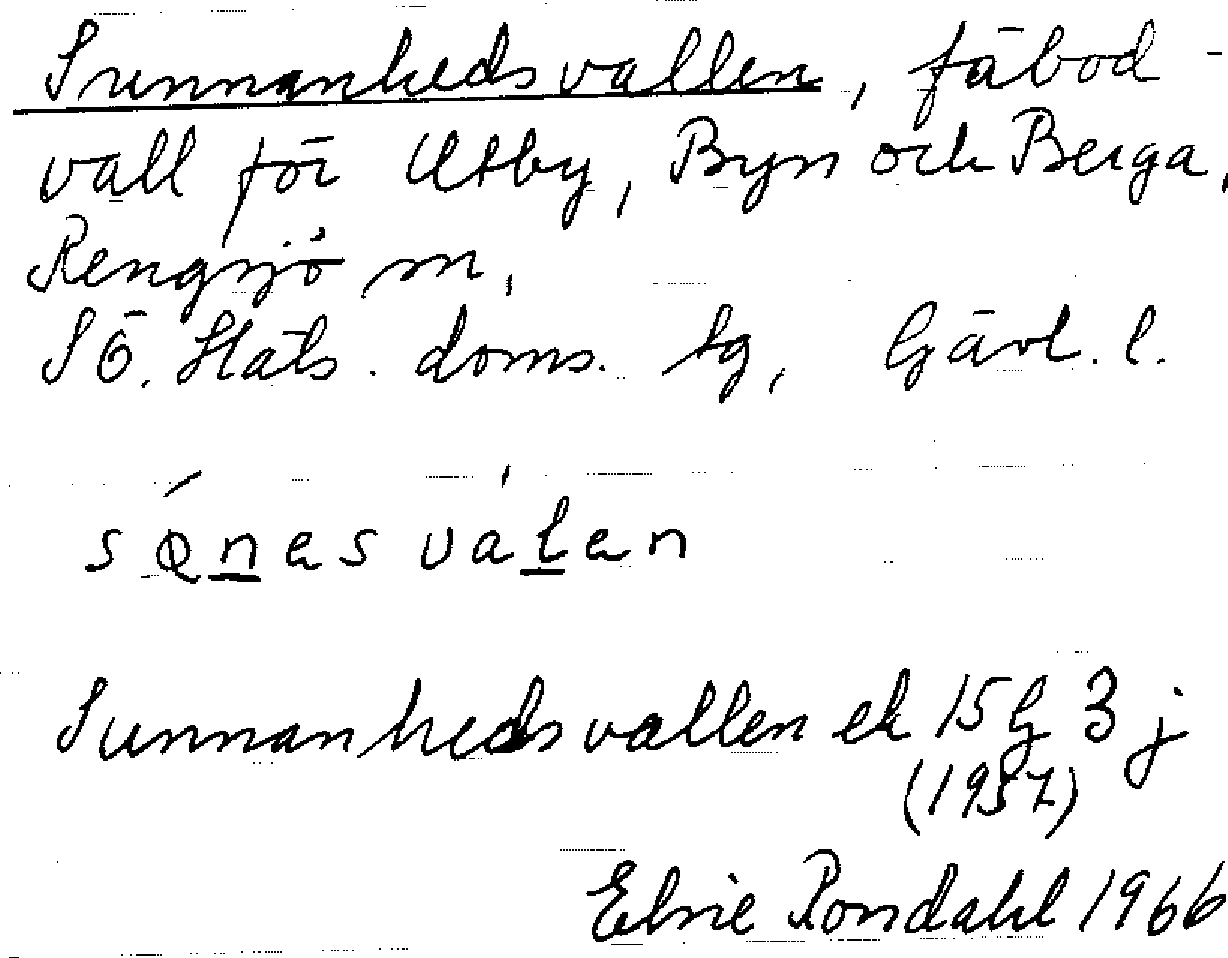 Sunnanhedsvallen, fäbod-
vall för Utby, Byn och Berga,
Rengsjö sn,
SÖ. Häls. doms. tg, Gävl. l.
sǫ́nesválen
Sunnanhedsvallen ek 15G 3j
(1957)
Elsie Rondahl 1966